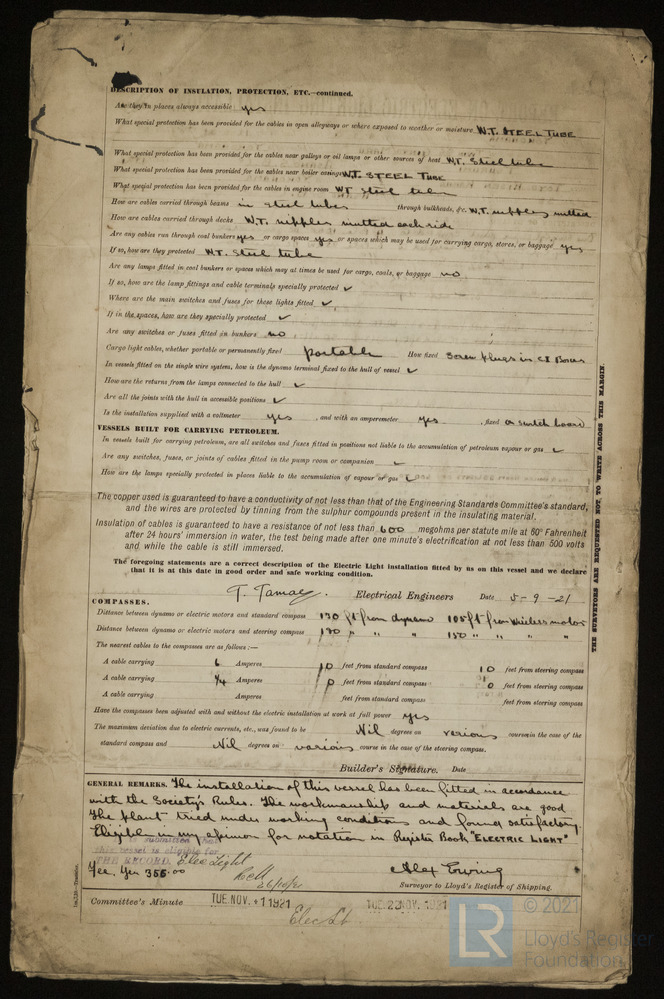 DESCRIPTION OF INSULATION, PROTECTION, ETC.—continued.
Are they in places always accessible yes
What special protection has been provided for the cables in open alleyways or where exposed to weather or moisture W.T. STEEL TUBE
What special protection has been provided for the cables near galleys or oil lamps or other sources of heat W.T. Steel tube
What special protection has been provided for the cables near boiler casings W.T. STEEL TUBE
What special protection has been provided for the cables in engine room W.T. Steel tube
How are cables carried through beams in steel tubes through bulkheads, &c. W.T. nipples nutted
How are cables carried through decks W.T. nipples nutted each side
Are any cables run through coal bunkers yes or cargo spaces yes or spaces which may be used for carrying cargo, stores, or baggage yes
If so, how are they protected W.T. Steel tube
Are any lamps fitted in coal bunkers or spaces which may at times be used for cargo, coals, or baggage no
If so, how are the lamp fittings and cable terminals specially protected ✓
Where are the main switches and fuses for these lights fitted ✓
If in the spaces, how are they specially protected ✓
Are any switches or fuses fitted in bunkers no
Cargo light cables, whether portable or permanently fixed portable How fixed Screw plugs in C.I. Boxes
In vessels fitted on the single wire system, how is the dynamo terminal fixed to the hull of vessel ✓
How are the returns from the lamps connected to the hull ✓
Are all the joints with the hull in accessible positions ✓
Is the installation supplied with a voltmeter yes , and with an amperemeter yes , fixed on switch board
VESSELS BUILT FOR CARRYING PETROLEUM.
In vessels built for carrying petroleum, are all switches and fuses fitted in positions not liable to the accumulation of petroleum vapour or gas ✓
Are any switches, fuses, or joints of cables fitted in the pump room or companion ✓
How are the lamps specially protected in places liable to the accumulation of vapour or gas ✓
The copper used is guaranteed to have a conductivity of not less than that of the Engineering Standards Committee's standard,
and the wires are protected by tinning from the sulphur compounds present in the insulating material.
Insulation of cables is guaranteed to have a resistance of not less than 600 megohms per statute mile at 60° Fahrenheit
after 24 hours' immersion in water, the test being made after one minute's electrification at not less than 500 volts
and while the cable is still immersed.
The foregoing statements are a correct description of the Electric Light installation fitted by us on this vessel and we declare
that it is at this date in good order and safe working condition.
Electrical Engineers Date 5-9-21
COMPASSES.
Distance between dynamo or electric motors and standard compass 130 ft from dynamo 105 ft from wireless motor
Distance between dynamo or electric motors and steering compass 130 " " " 150 " " " "
The nearest cables to the compasses are as follows:—
A cable carrying 6 Amperes 10 feet from standard compass 10 feet from steering compass
A cable carrying 1/4 Amperes 0 feet from standard compass 0 feet from steering compass
A cable carrying Amperes feet from standard compass feet from steering compass
Have the compasses been adjusted with and without the electric installation at work at full power yes
The maximum deviation due to electric currents, etc., was found to be Nil degrees on various course in the case of the
standard compass and Nil degrees on various course in the case of the steering compass.
Builder's Signature. Date
GENERAL REMARKS. The installation of this vessel has been fitted in accordance
with the Society's Rules. The workmanship and materials are good
The plant tried under working conditions and found satisfactory
Eligible in my opinion for notation in Register Book "ELECTRIC LIGHT"
It is submitted that
this vessel is eligible for
THE RECORD. Elec Light
Fee. Yen 355.00
Surveyor to Lloyd's Register of Shipping.
Committee's Minute TUE. NOV. 1 1921 TUE. 22 NOV. 1921
Elec Lt
THE SURVEYORS ARE REQUESTED NOT TO WRITE ACROSS THIS MARGIN.
LR
© 2021
Lloyd's Register
Foundation